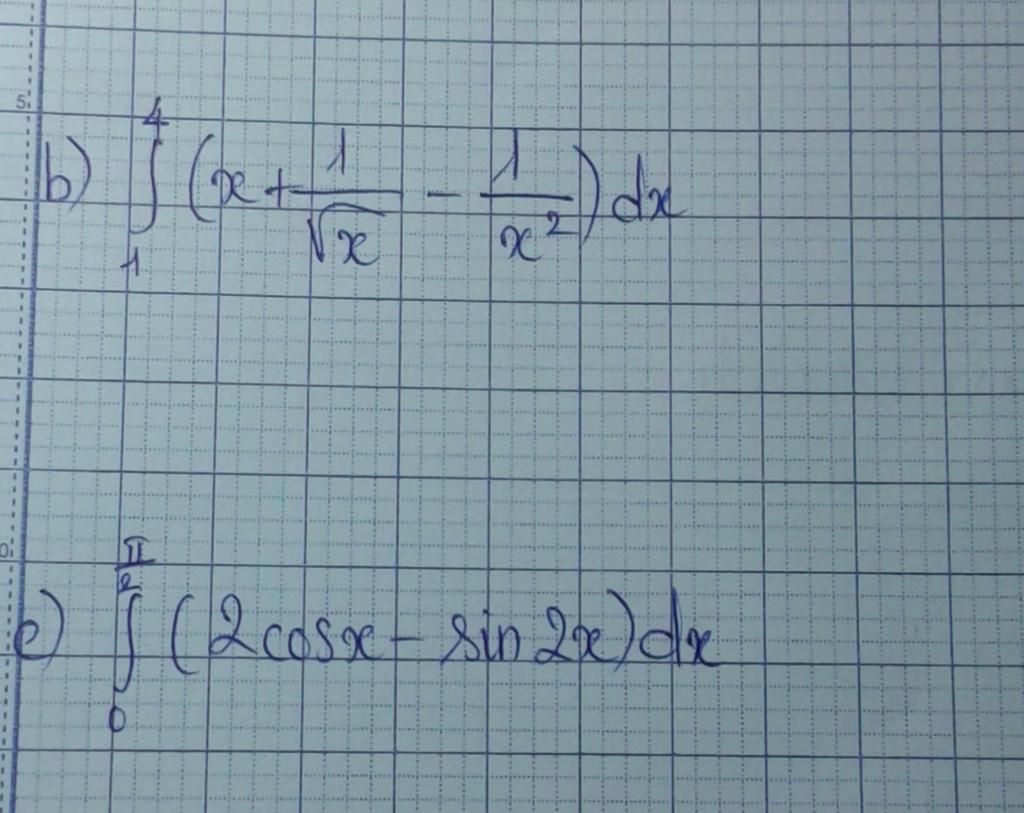 5
b) ∫₁⁴ (x + 1/√x − 1/x²) dx
0
c) ∫₀^(π/2) (2cosx − sin 2x) dx